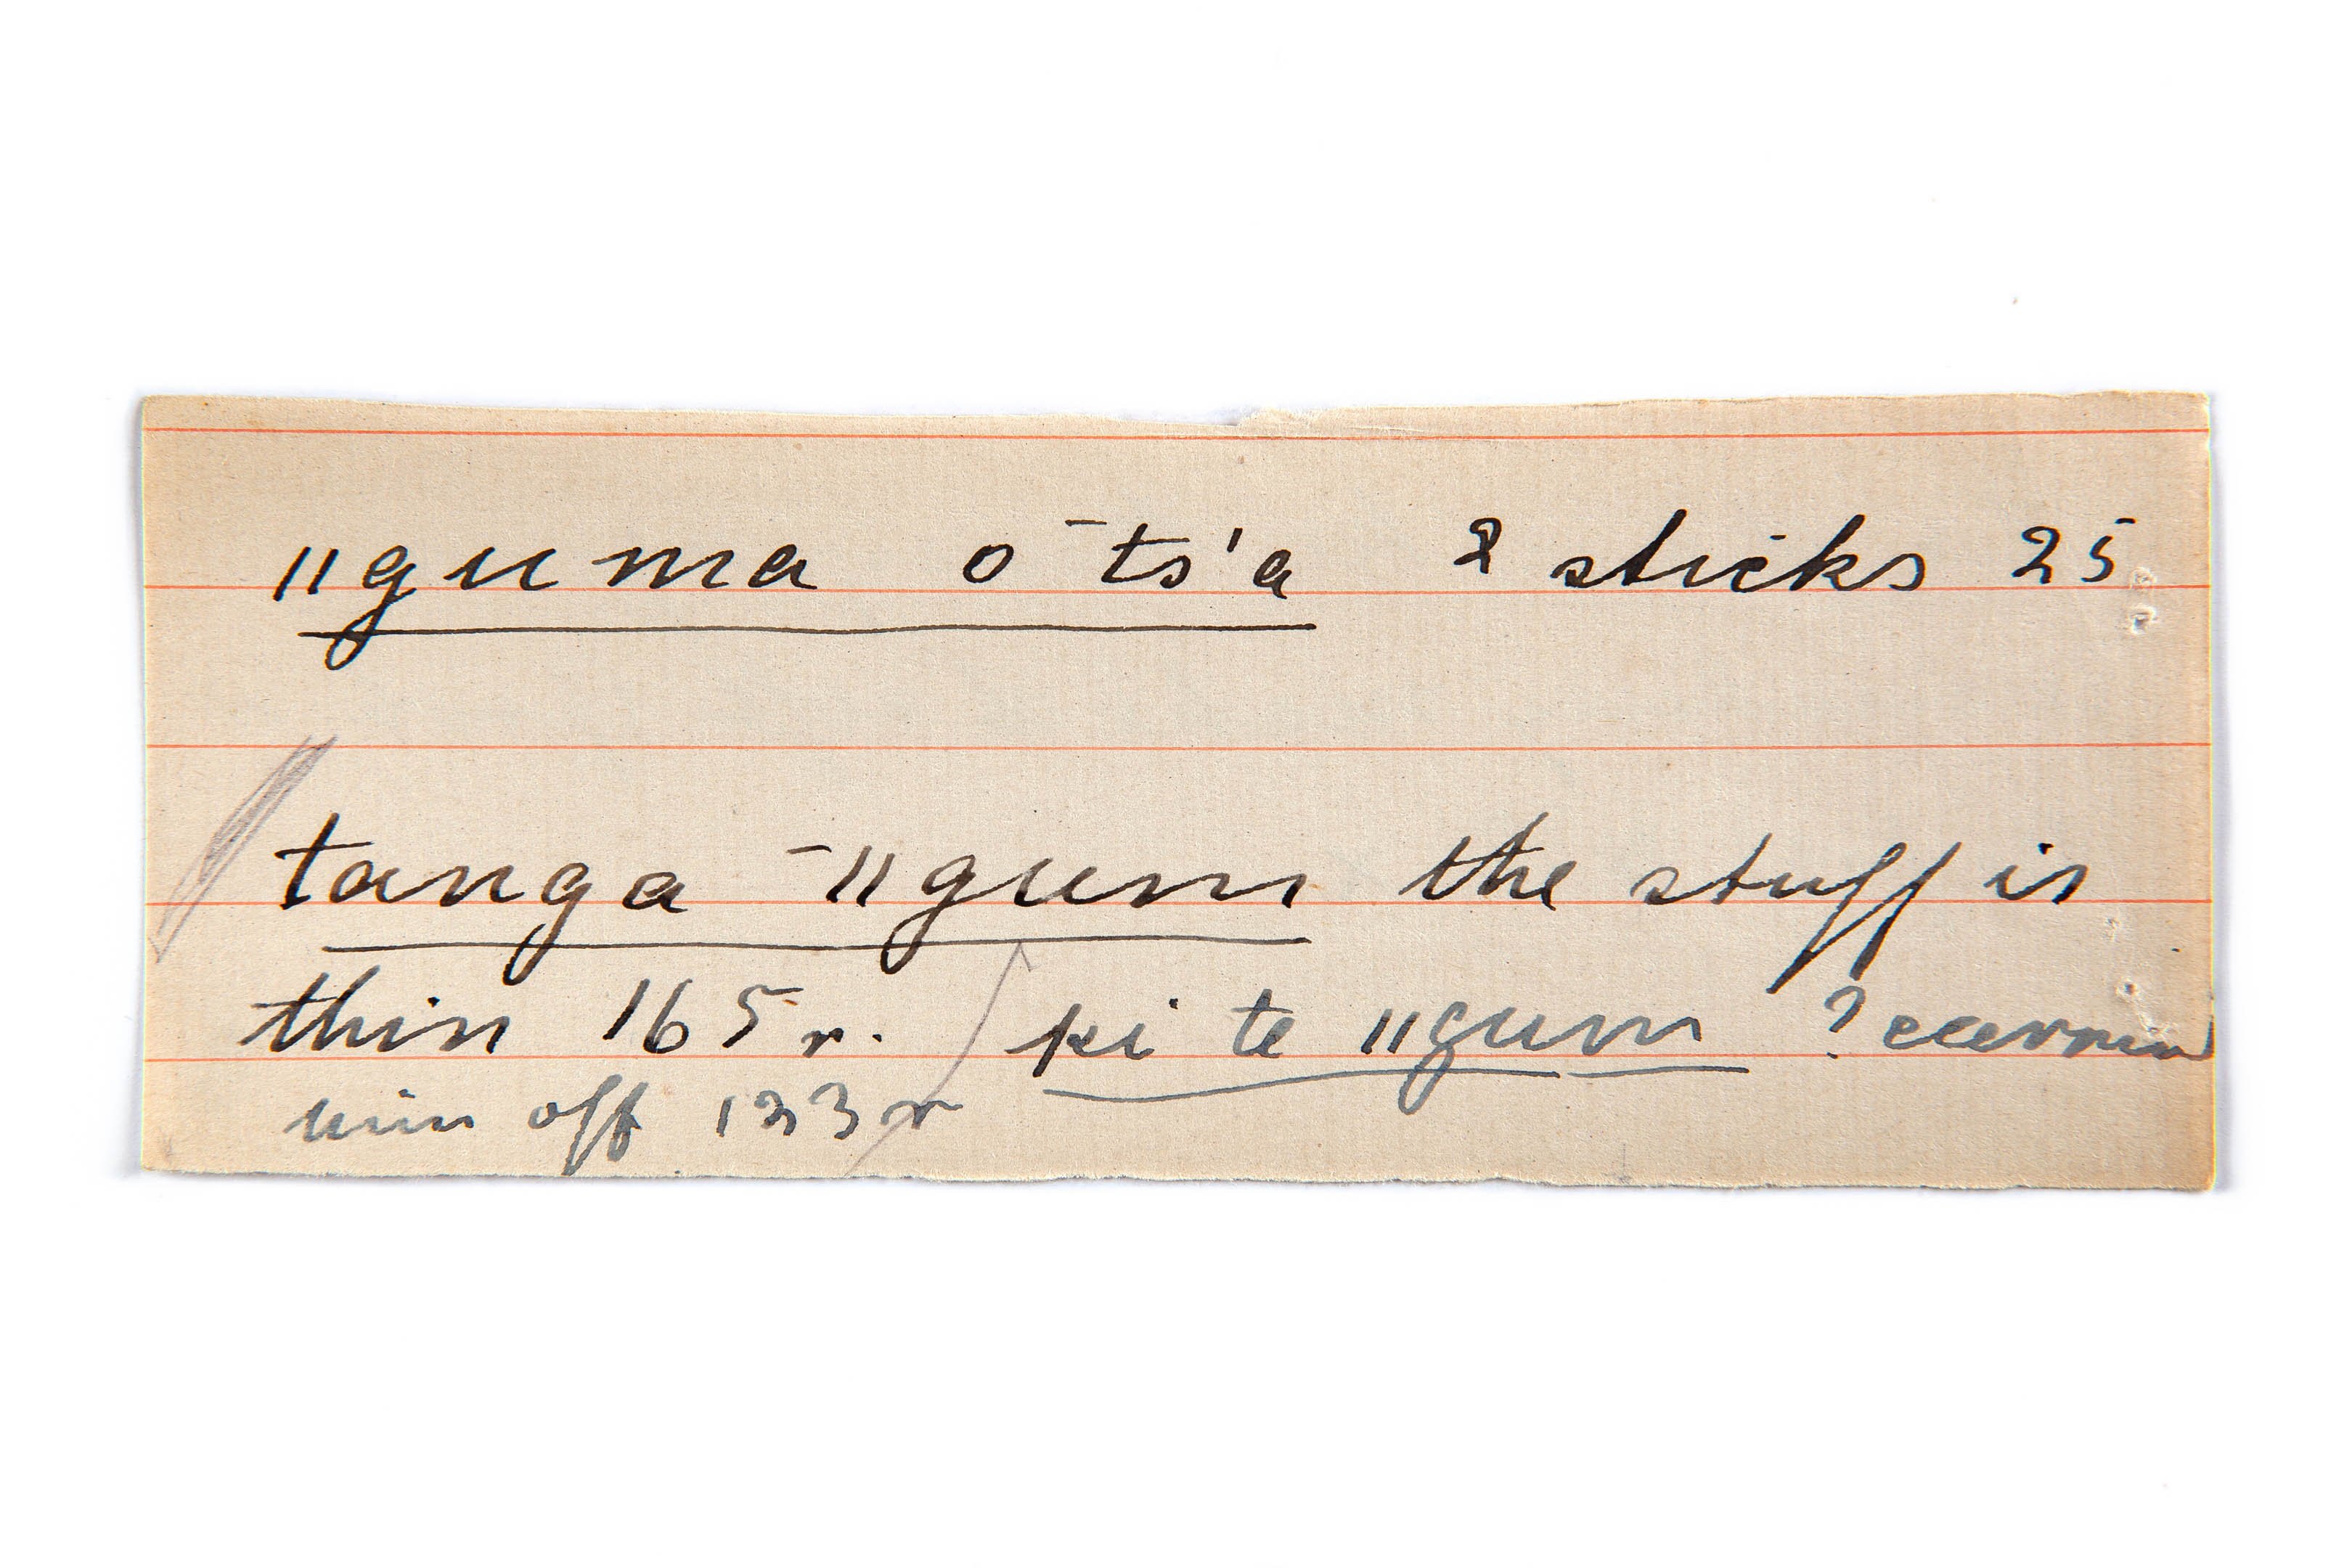 ǁguma o ̄ts'a 2 sticks 25
tanga ̄ǁgum the stuff is
thin 165 r. ki te ǁgum ?
off 133 r